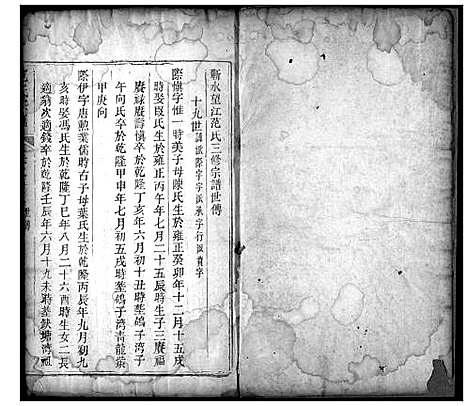 蘄水望江范氏三修宗譜世傳
十九世譜派際字字派承字行派貴字
際慎字惟一時美子母陳氏生於雍正癸卯年十二月十五戌
時娶臣氏生於雍正丙午年七月二十五辰時生子三賡福
賡祿賡壽慎卒於乾隆丁亥年六月初十丑時塟鴿子湾子
午向氏卒於乾隆甲申年七月初五戌時塟鴿子湾青龍嘴
甲庚向
際伊字唐勲業儒時右子母葉氏生於乾隆丙辰年九月初九
亥時娶馮氏生於乾隆丁巳年八月二十六酉時生女二長
適翁次適錢卒於乾隆壬辰年六月十九未時塟鈇塘湾